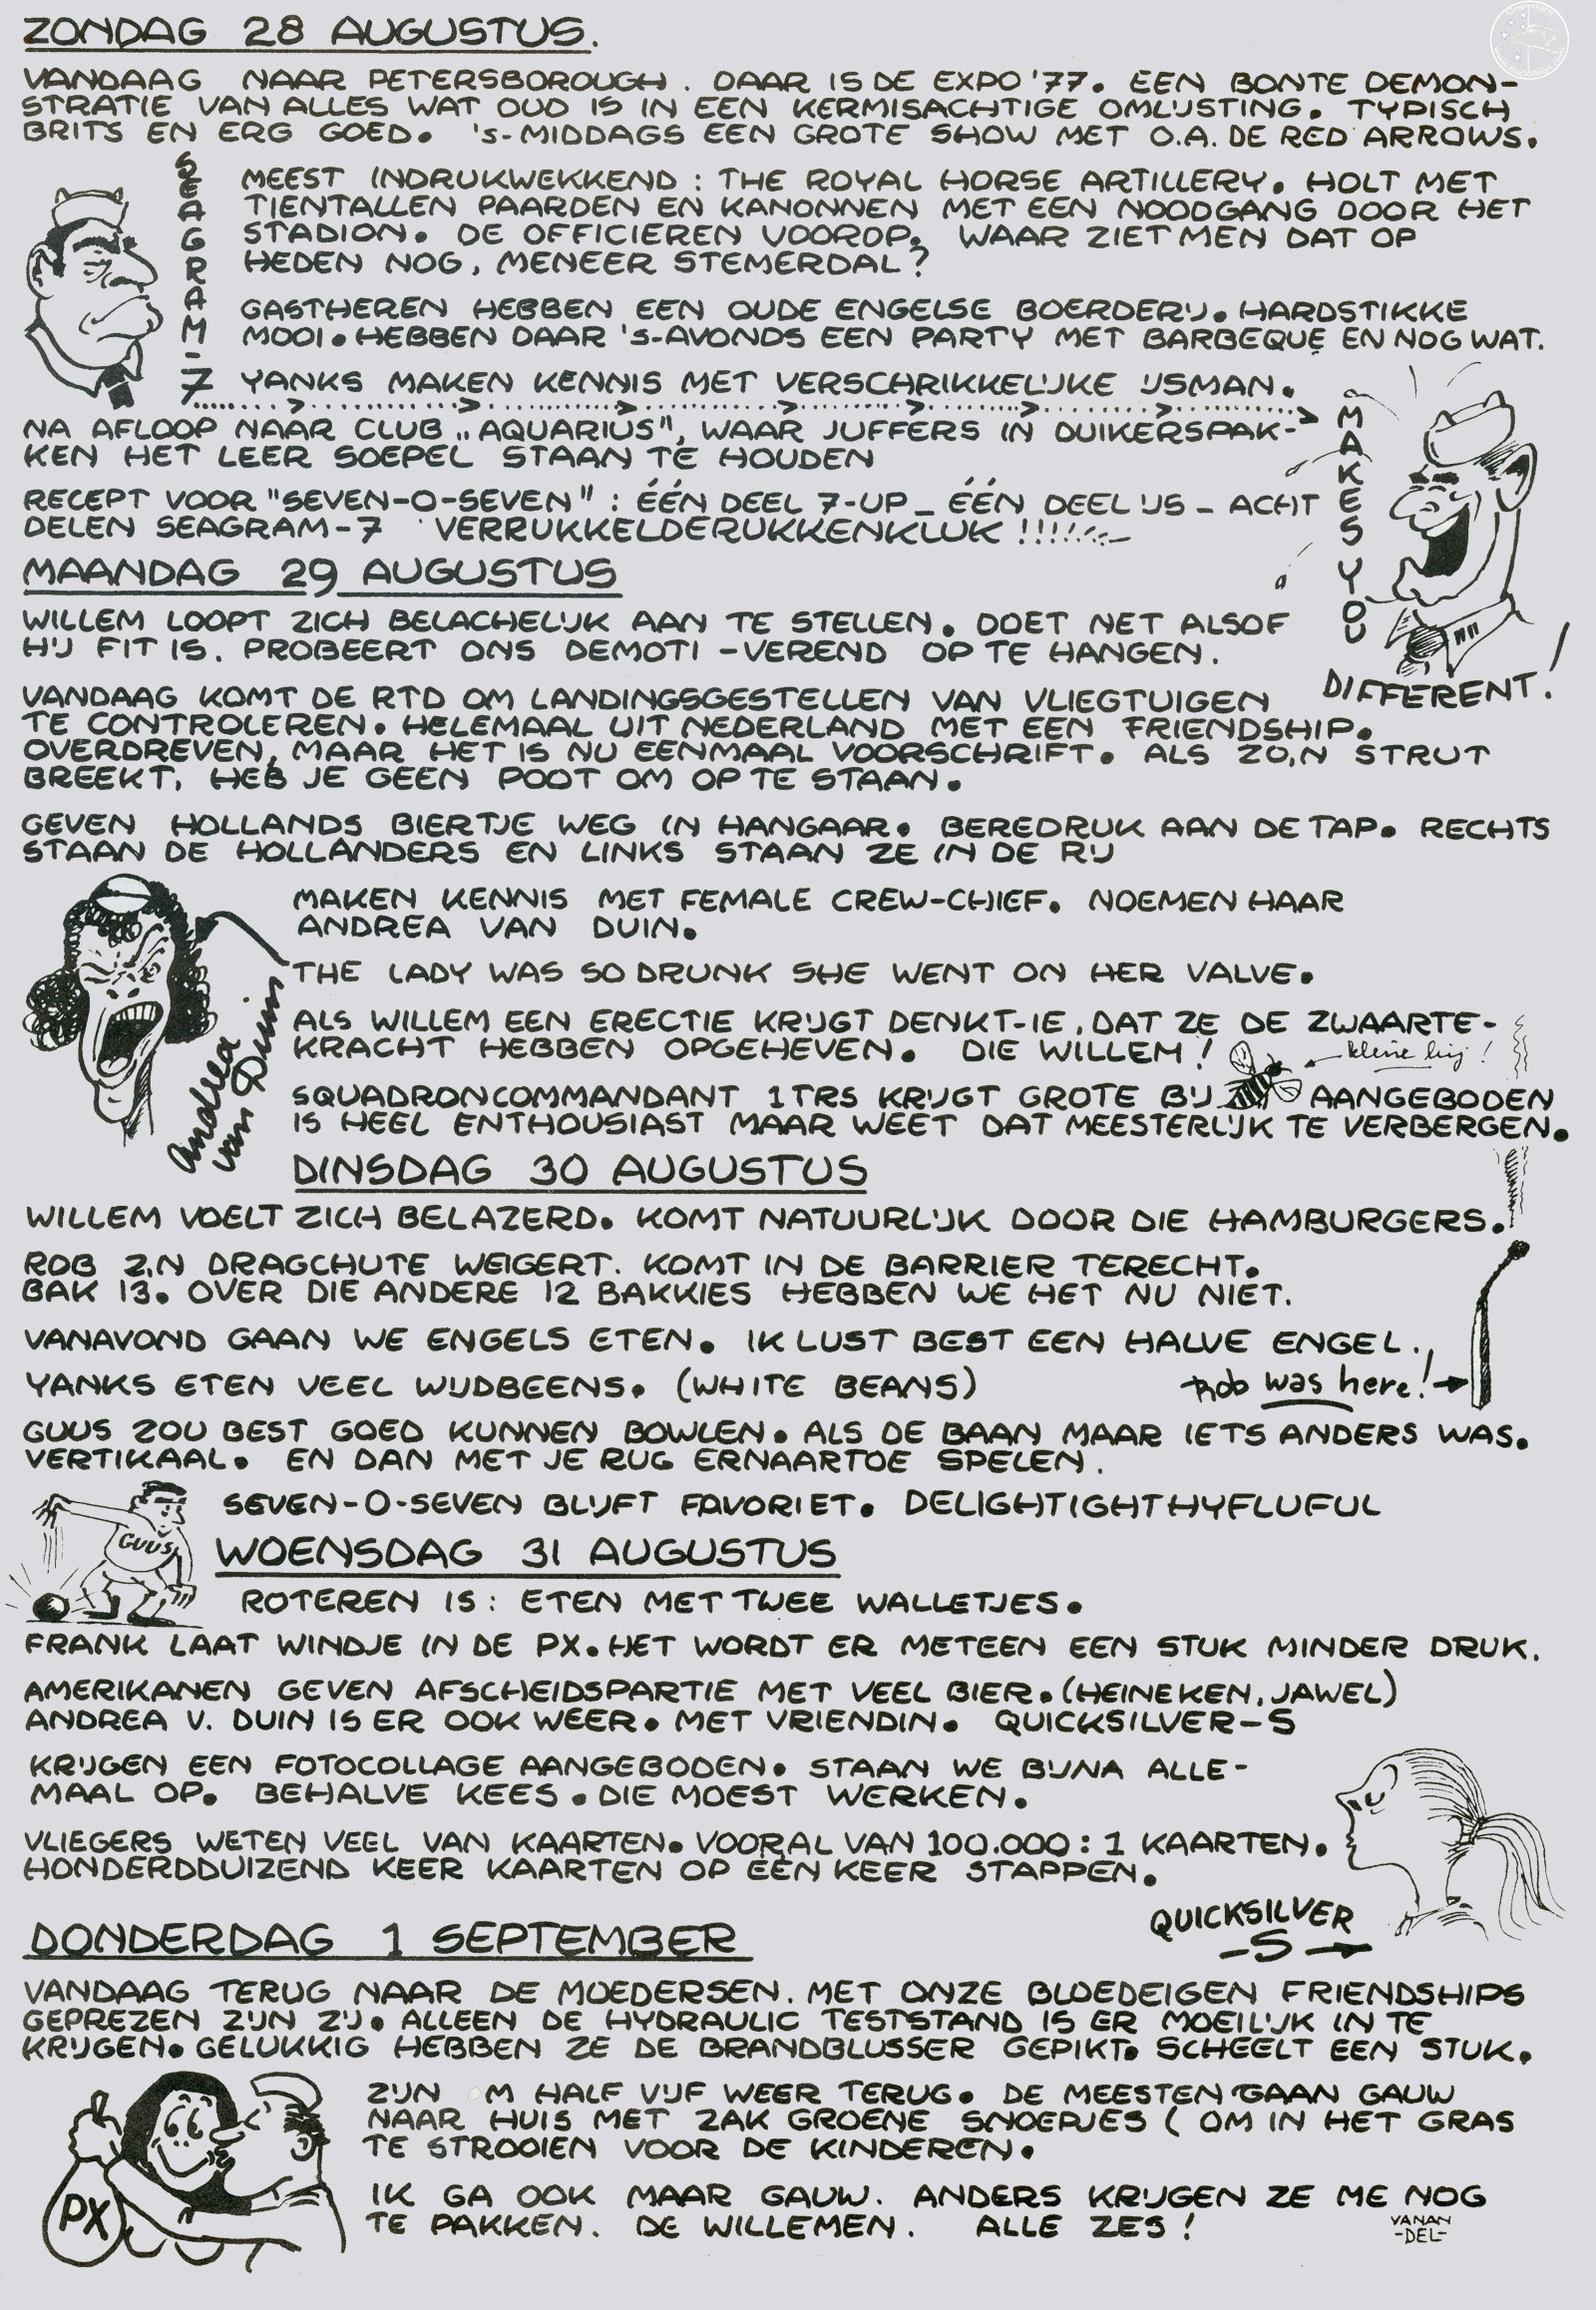 ZONDAG 28 AUGUSTUS.
VANDAAG NAAR PETERSBOROUGH. DAAR IS DE EXPO '77. EEN BONTE DEMON-
STRATIE VAN ALLES WAT OUD IS IN EEN KERMISACHTIGE OMLIJSTING. TYPISCH
BRITS EN ERG GOED. 's-MIDDAGS EEN GROTE SHOW MET O.A. DE RED ARROWS.
SEAGRAM-7
MEEST INDRUKWEKKEND : THE ROYAL HORSE ARTILLERY. HOLT MET
TIENTALLEN PAARDEN EN KANONNEN MET EEN NOODGANG DOOR HET
STADION. DE OFFICIEREN VOOROP. WAAR ZIET MEN DAT OP
HEDEN NOG, MENEER STEMERDAL?
GASTHEREN HEBBEN EEN OUDE ENGELSE BOERDERIJ. HARDSTIKKE
MOOI. HEBBEN DAAR 's-AVONDS EEN PARTY MET BARBEQUE EN NOG WAT.
YANKS MAKEN KENNIS MET VERSCHRIKKELIJKE IJSMAN.
MAKES YOU
DIFFERENT!
NA AFLOOP NAAR CLUB „AQUARIUS", WAAR JUFFERS IN DUIKERSPAK-
KEN HET LEER SOEPEL STAAN TE HOUDEN
RECEPT VOOR "SEVEN-O-SEVEN" : ÉÉN DEEL 7-UP _ ÉÉN DEEL IJS - ACHT
DELEN SEAGRAM-7 VERRUKKELDERUKKENKLUK !!!!!
MAANDAG 29 AUGUSTUS
WILLEM LOOPT ZICH BELACHELIJK AAN TE STELLEN. DOET NET ALSOF
HIJ FIT IS. PROBEERT ONS DEMOTI -VEREND OP TE HANGEN.
VANDAAG KOMT DE RTD OM LANDINGSGESTELLEN VAN VLIEGTUIGEN
TE CONTROLEREN. HELEMAAL UIT NEDERLAND MET EEN FRIENDSHIP.
OVERDREVEN, MAAR HET IS NU EENMAAL VOORSCHRIFT. ALS ZO,N STRUT
BREEKT, HEB JE GEEN POOT OM OP TE STAAN.
GEVEN HOLLANDS BIERTJE WEG IN HANGAAR. BEREDRUK AAN DE TAP. RECHTS
STAAN DE HOLLANDERS EN LINKS STAAN ZE IN DE RIJ
MAKEN KENNIS MET FEMALE CREW-CHIEF. NOEMEN HAAR
ANDREA VAN DUIN.
Andrea
van Duin
THE LADY WAS SO DRUNK SHE WENT ON HER VALVE.
ALS WILLEM EEN ERECTIE KRIJGT DENKT-IE, DAT ZE DE ZWAARTE-
KRACHT HEBBEN OPGEHEVEN. DIE WILLEM!
kleine bij!
SQUADRONCOMMANDANT 1TRS KRIJGT GROTE BIJ AANGEBODEN
IS HEEL ENTHOUSIAST MAAR WEET DAT MEESTERLIJK TE VERBERGEN.
DINSDAG 30 AUGUSTUS
WILLEM VOELT ZICH BELAZERD. KOMT NATUURLIJK DOOR DIE HAMBURGERS.
ROB Z,N DRAGCHUTE WEIGERT. KOMT IN DE BARRIER TERECHT.
BAK 13. OVER DIE ANDERE 12 BAKKIES HEBBEN WE HET NU NIET.
VANAVOND GAAN WE ENGELS ETEN. IK LUST BEST EEN HALVE ENGEL.
YANKS ETEN VEEL WIJDBEENS. (WHITE BEANS)
Rob was here!
GUUS ZOU BEST GOED KUNNEN BOWLEN. ALS DE BAAN MAAR IETS ANDERS WAS.
VERTIKAAL. EN DAN MET JE RUG ERNAARTOE SPELEN.
GUUS
SEVEN-O-SEVEN BLIJFT FAVORIET. DELIGHTIGHTHYFLUFUL
WOENSDAG 31 AUGUSTUS
ROTEREN IS : ETEN MET TWEE WALLETJES.
FRANK LAAT WINDJE IN DE PX. HET WORDT ER METEEN EEN STUK MINDER DRUK.
AMERIKANEN GEVEN AFSCHEIDSPARTIE MET VEEL BIER. (HEINEKEN, JAWEL)
ANDREA V. DUIN IS ER OOK WEER. MET VRIENDIN. QUICKSILVER-S
KRIJGEN EEN FOTOCOLLAGE AANGEBODEN. STAAN WE BIJNA ALLE-
MAAL OP. BEHALVE KEES. DIE MOEST WERKEN.
VLIEGERS WETEN VEEL VAN KAARTEN. VOORAL VAN 100.000 : 1 KAARTEN.
HONDERDDUIZEND KEER KAARTEN OP ÉÉN KEER STAPPEN.
QUICKSILVER
-S
DONDERDAG 1 SEPTEMBER
VANDAAG TERUG NAAR DE MOEDERSEN. MET ONZE BLOEDEIGEN FRIENDSHIPS
GEPREZEN ZIJN ZIJ. ALLEEN DE HYDRAULIC TESTSTAND IS ER MOEILIJK IN TE
KRIJGEN. GELUKKIG HEBBEN ZE DE BRANDBLUSSER GEPIKT. SCHEELT EEN STUK.
PX
ZIJN M HALF VIJF WEER TERUG. DE MEESTEN GAAN GAUW
NAAR HUIS MET ZAK GROENE SNOEPJES ( OM IN HET GRAS
TE STROOIEN VOOR DE KINDEREN.
IK GA OOK MAAR GAUW. ANDERS KRIJGEN ZE ME NOG
TE PAKKEN. DE WILLEMEN. ALLE ZES!
VANAN
-DEL-